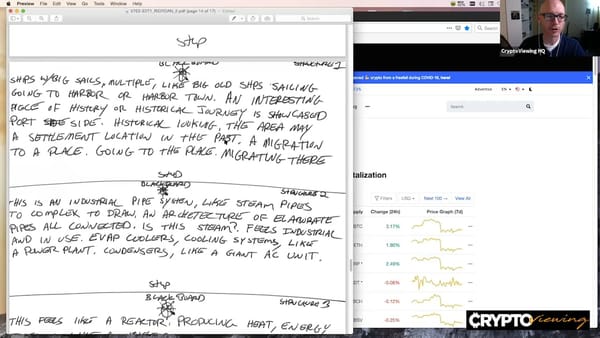 Preview File Edit View Go Tools Window Help
(page 14 of 17)
stop
BLACKBOARD
STRUCTURE 1
SHIPS W/BIG SAILS, MULTIPLE, LIKE BIG OLD SHIPS SAILING
GOING TO HARBOR OR HARBOR TOWN. AN INTERESTING
PIECE OF HISTORY OR HISTORICAL JOURNEY IS SHOWCASED
PORT SIDE. HISTORICAL LOOKING. THE AREA MAY
A SETTLEMENT LOCATION IN THE PAST. A MIGRATION
TO A PLACE. GOING TO THE PLACE. MIGRATING THERE
STOP
BLACKBOARD
STRUCTURE 2
THIS IS AN INDUSTRIAL PIPE SYSTEM, LIKE STEAM PIPES
TO COMPLEX TO DRAW. AN ARCHITECTURE OF ELABORATE
PIPES ALL CONNECTED. IS THIS STEAM? FEELS INDUSTRIAL
AND IN USE. EVAP COOLERS, COOLING SYSTEMS, LIKE
A POWER PLANT. CONDENSERS, LIKE A GIANT AC UNIT.
stop
BLACK BOARD
STRUCTURE 3
THIS FEELS LIKE A REACTOR. PRODUCING HEAT, ENERGY
crypto from a freefall during COVID-19, here!
Advertise EN
Search
talization
Filters USD Next 100 → View All
pply Change (24h) Price Graph (7d)
BTC 3.17%
ETH 1.80%
RP * 2.49%
DT * -0.06%
BCH -0.12%
BSV -0.25%
CryptoViewing HQ
CRYPTO Viewing